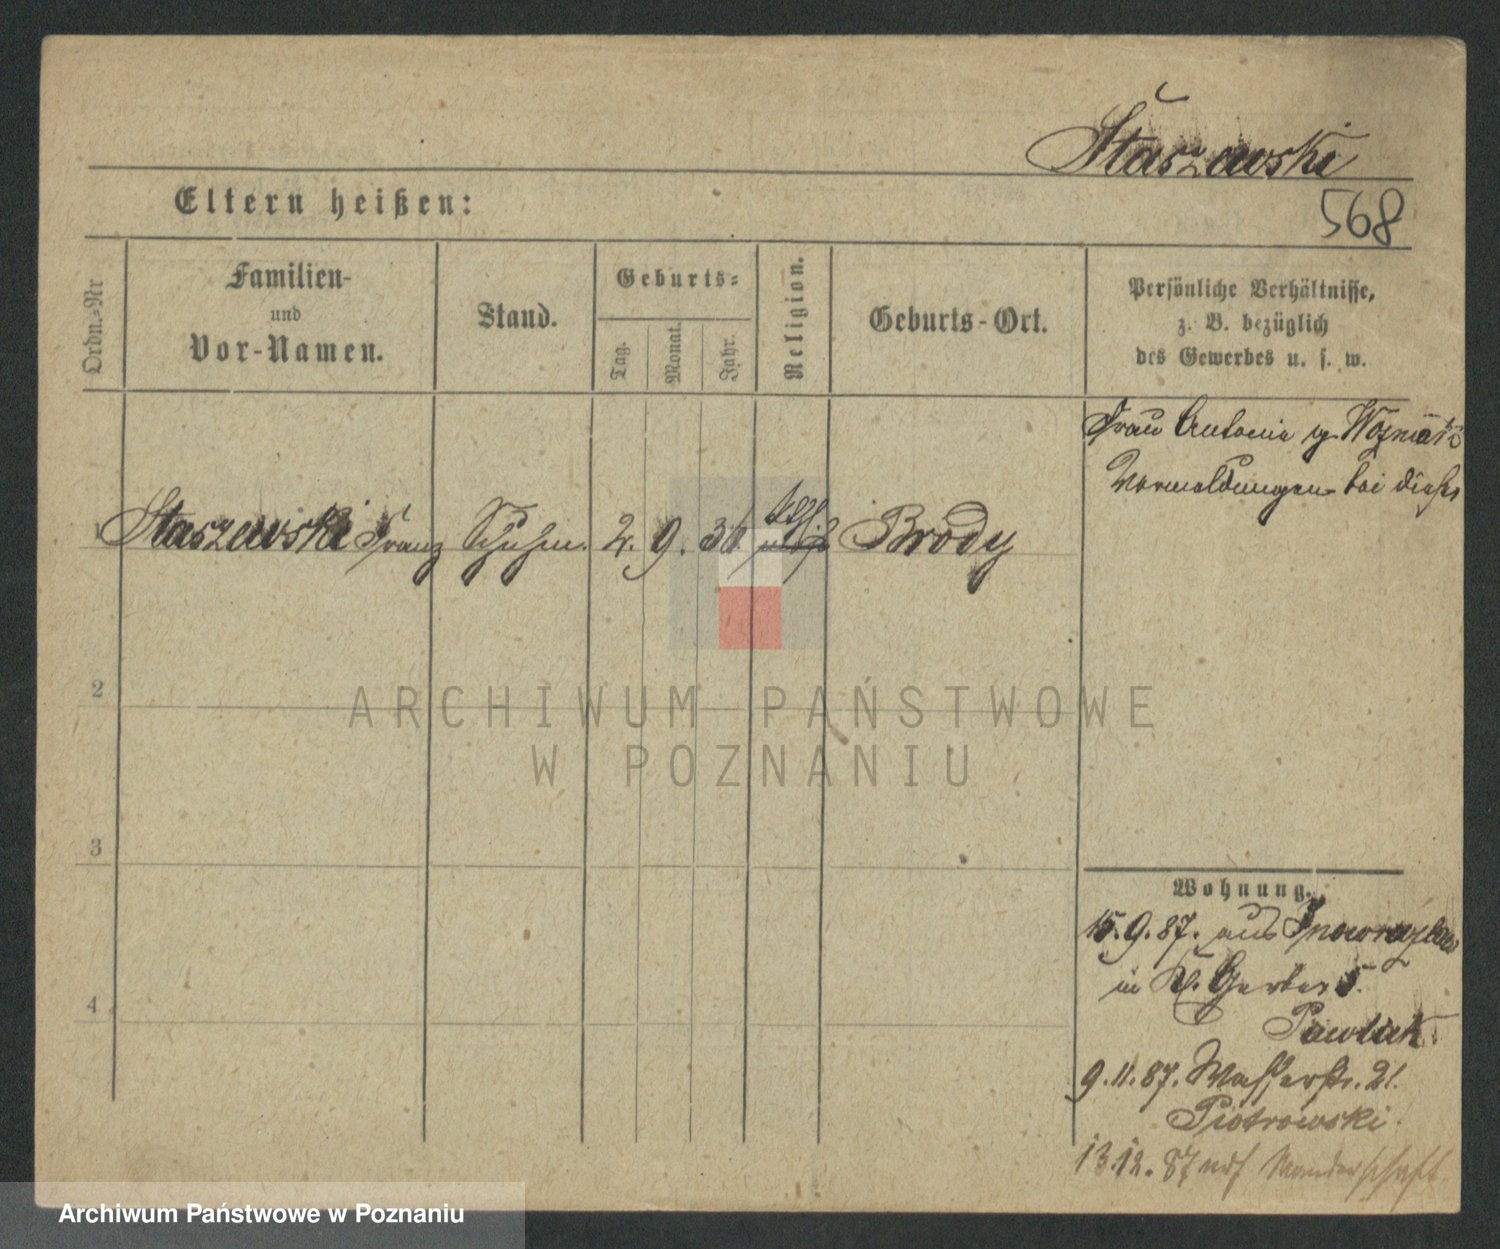 Staszewski
Eltern heißen:
568
Ordn.-Nr
Familien-
und
Vor-Namen.
Stand.
Geburts-
Tag.
Monat.
Jahr.
Religion.
Geburts-Ort.
Persönliche Verhältnisse,
z. B. bezüglich
des Gewerbes u. s. w.
Frau Antonie g. Wozniak
Vormeldungen bei dieser
1 Staszewski Franz Schuhm. 2. 9. 36 kth. Brody
2
3
4
Wohnung.
15.9.87. aus Inowrazlaw
in Kl. Gerber 5.
Pawlak.
9.11.87. Wasserstr. 21.
Piotrowski.
13.12.87 auf Wanderschaft.
ARCHIWUM PAŃSTWOWE
W POZNANIU
Archiwum Państwowe w Poznaniu